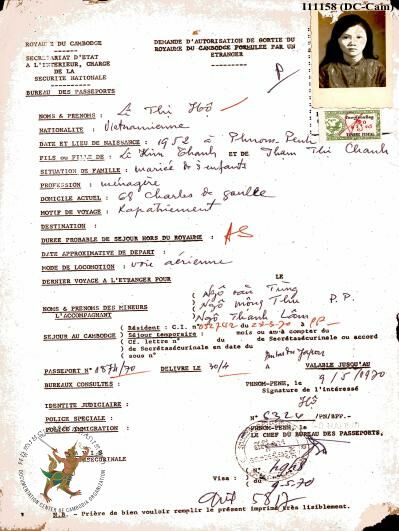 111158 (DC-Cam)
ROYAUME DU CAMBODGE
SECRETARIAT D'ETAT
A L'INTERIEUR, CHARGE
DE LA
SECURITE NATIONALE
BUREAU DES PASSEPORTS
DEMANDE D'AUTORISATION DE SORTIE DU
ROYAUME DU CAMBODGE FORMULEE PAR UN
ETRANGER
P
NOMS & PRENOMS : Lê Thi Hô
NATIONALITE : Vietnamienne
DATE ET LIEU DE NAISSANCE : 1952 à Phnom-Penh
FILS ou FILLE DE : Lê Kim Thanh ET DE Pham Thi Chanh
SITUATION DE FAMILLE : mariée & 3 enfants
PROFESSION : ménagère
DOMICILE ACTUEL : 68 Charles de gaulle
MOTIF DE VOYAGE : Rapatriement
DESTINATION :
DUREE PROBABLE DE SEJOUR HORS DU ROYAUME : AS
DATE APPROXIMATIVE DE DEPART :
MODE DE LOCOMOTION : voie aérienne
DERNIER VOYAGE A L'ETRANGER POUR LE
NOMS & PRENOMS DES MINEURS
L'ACCOMPAGNANT
( Ngô văn Tùng
( Ngô Mông Thu P.P.
( Ngô Thanh Lâm
SEJOUR AU CAMBODGE
( Résident : C.I. n° à PP
( Séjour temporaire : mois ou an à compter du
( Cf. lettre n° du de Secrétasécurinale ou accord
( de Secrétasécurinale en date du
( sous n°
PASSEPORT N° 0874/70 DELIVRE LE 30/4 A VALABLE JUSQU'AU
9/5/1970
BUREAUX CONSULTES : PHNOM-PENH, le
Signature de l'intéressé
Hô
IDENTITE JUDICIAIRE :
POLICE SPECIALE :
POLICE IMMIGRATION :
N° /PN/BPP.-
PHNOM-PENH, le
LE CHEF DU BUREAU DES PASSEPORTS,
AVIS
Visa :
N.B. - Prière de bien vouloir remplir le présent imprimé très lisiblement.
DOCUMENTATION CENTER OF CAMBODIA ORGANIZATION